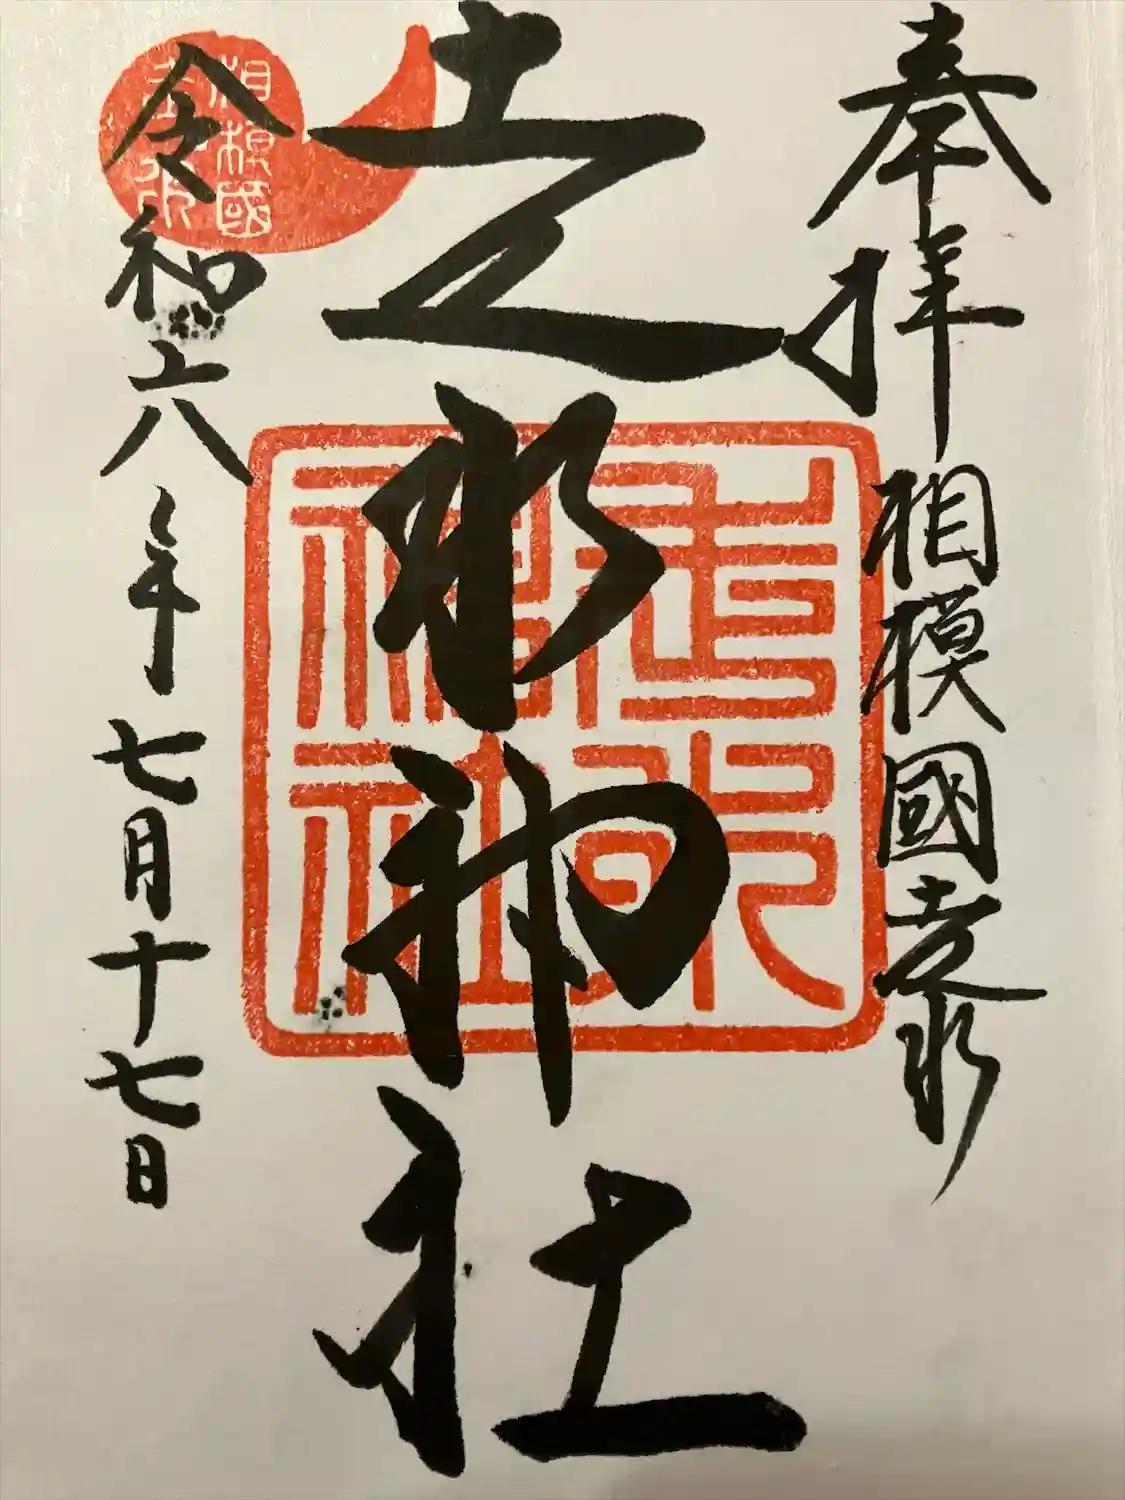 奉拝 相模國走水
走水神社
令和六年七月十七日
走水
神社
相模國
走水